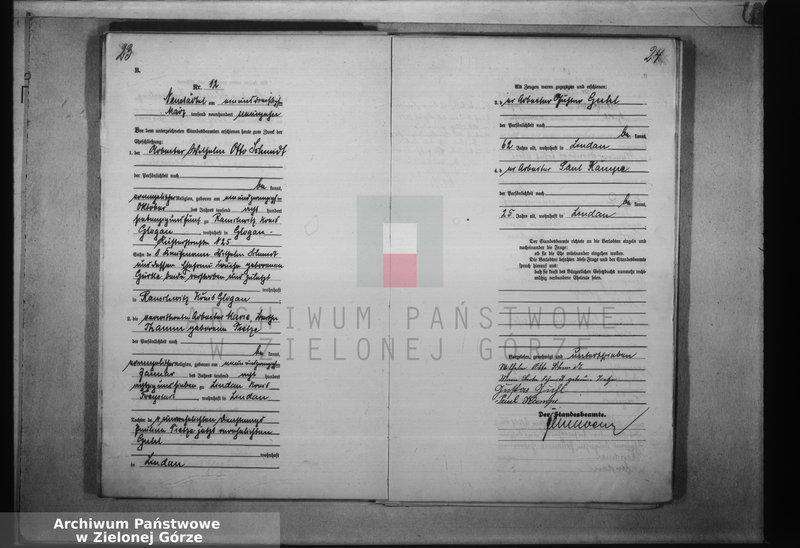 23
B.
Nr. 12
Neustädtel am einunddreißigsten
März tausend neunhundert neunzehn
Vor dem unterzeichneten Standesbeamten erschienen heute zum Zweck der
Eheschließung:
1. der Arbeiter Wilhelm Otto Schmidt
der Persönlichkeit nach
be kannt,
evangelischer Religion, geboren am
Oktober des Jahres tausend acht hundert
zu Rauschwitz Kreis
Glogau, wohnhaft in Glogau-
N 25
Sohn des Wilhelm Schmidt
und dessen Ehefrau geborenen
beide verstorben und zuletzt
wohnhaft
in Rauschwitz Kreis Glogau
2. die verwitwete Arbeiter Marie Bertha
Thamm geborene Tietze
der Persönlichkeit nach
be kannt,
evangelischer Religion, geboren am
Januar des Jahres tausend acht hundert
zu Lindau Kreis
Freystadt, wohnhaft in Lindau
Tochter der unverehelichten
Pauline Tietze jetzt verehelichten
wohnhaft
in Lindau
24
Als Zeugen waren zugezogen und erschienen:
3. der Arbeiter Gustav
der Persönlichkeit nach
be kannt,
62 Jahre alt, wohnhaft in Lindau
4. der Arbeiter Paul Kampe
der Persönlichkeit nach
be kannt,
25 Jahre alt, wohnhaft in Lindau
Der Standesbeamte richtete an die Verlobten einzeln und
nacheinander die Frage:
ob sie die Ehe miteinander eingehen wollen.
Die Verlobten bejahten diese Frage und der Standesbeamte
sprach hierauf aus:
daß sie kraft des Bürgerlichen Gesetzbuchs nunmehr recht-
mäßig verbundene Eheleute seien.
Vorgelesen, genehmigt und unterschrieben
Wilhelm Otto Schmidt
Schmidt geborene Tietze
Gustav
Paul Kampe
Der Standesbeamte.
ARCHIWUM PAŃSTWOWE
W ZIELONEJ GÓRZE
Archiwum Państwowe
w Zielonej Górze